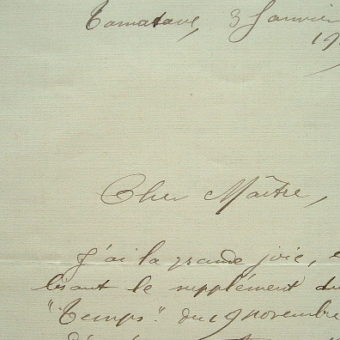 Tamatave, 3 Janvier
19
Cher Maître,
J'ai la grande joie, e
lisant le supplément du
"Temps" du 19 novembre